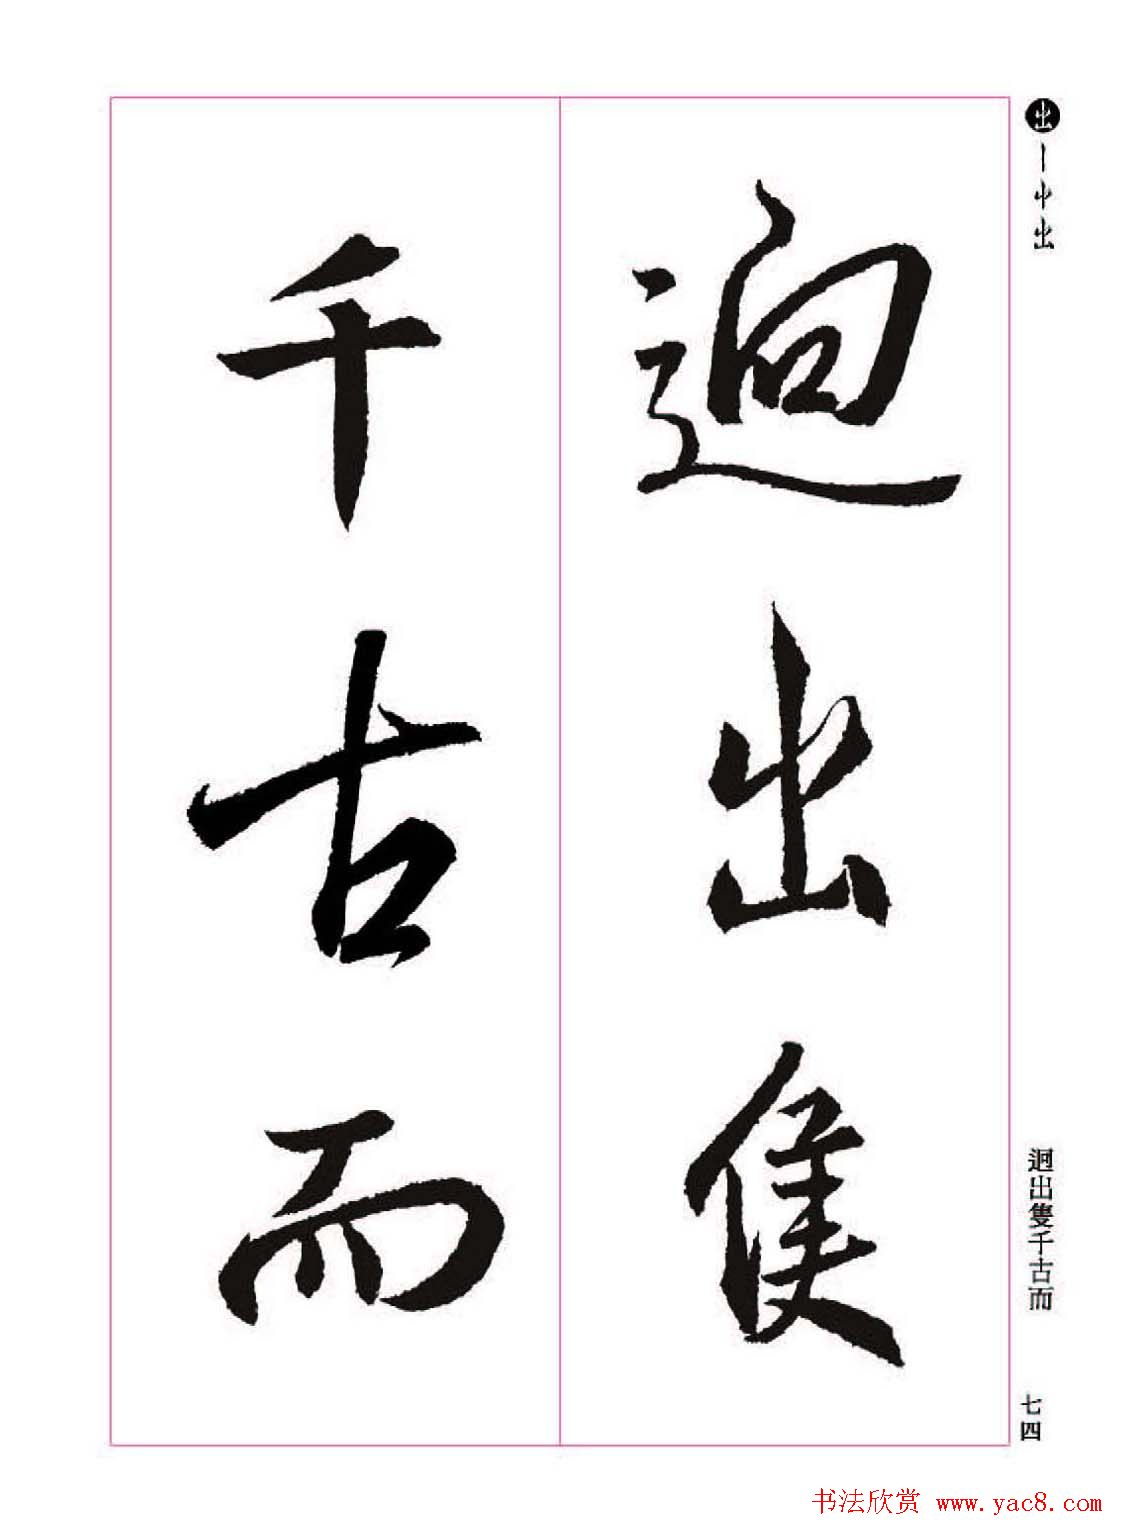 迥出隻
千古而
出丨屮出
迥出隻千古而
七四
书法欣赏 www.yac8.com